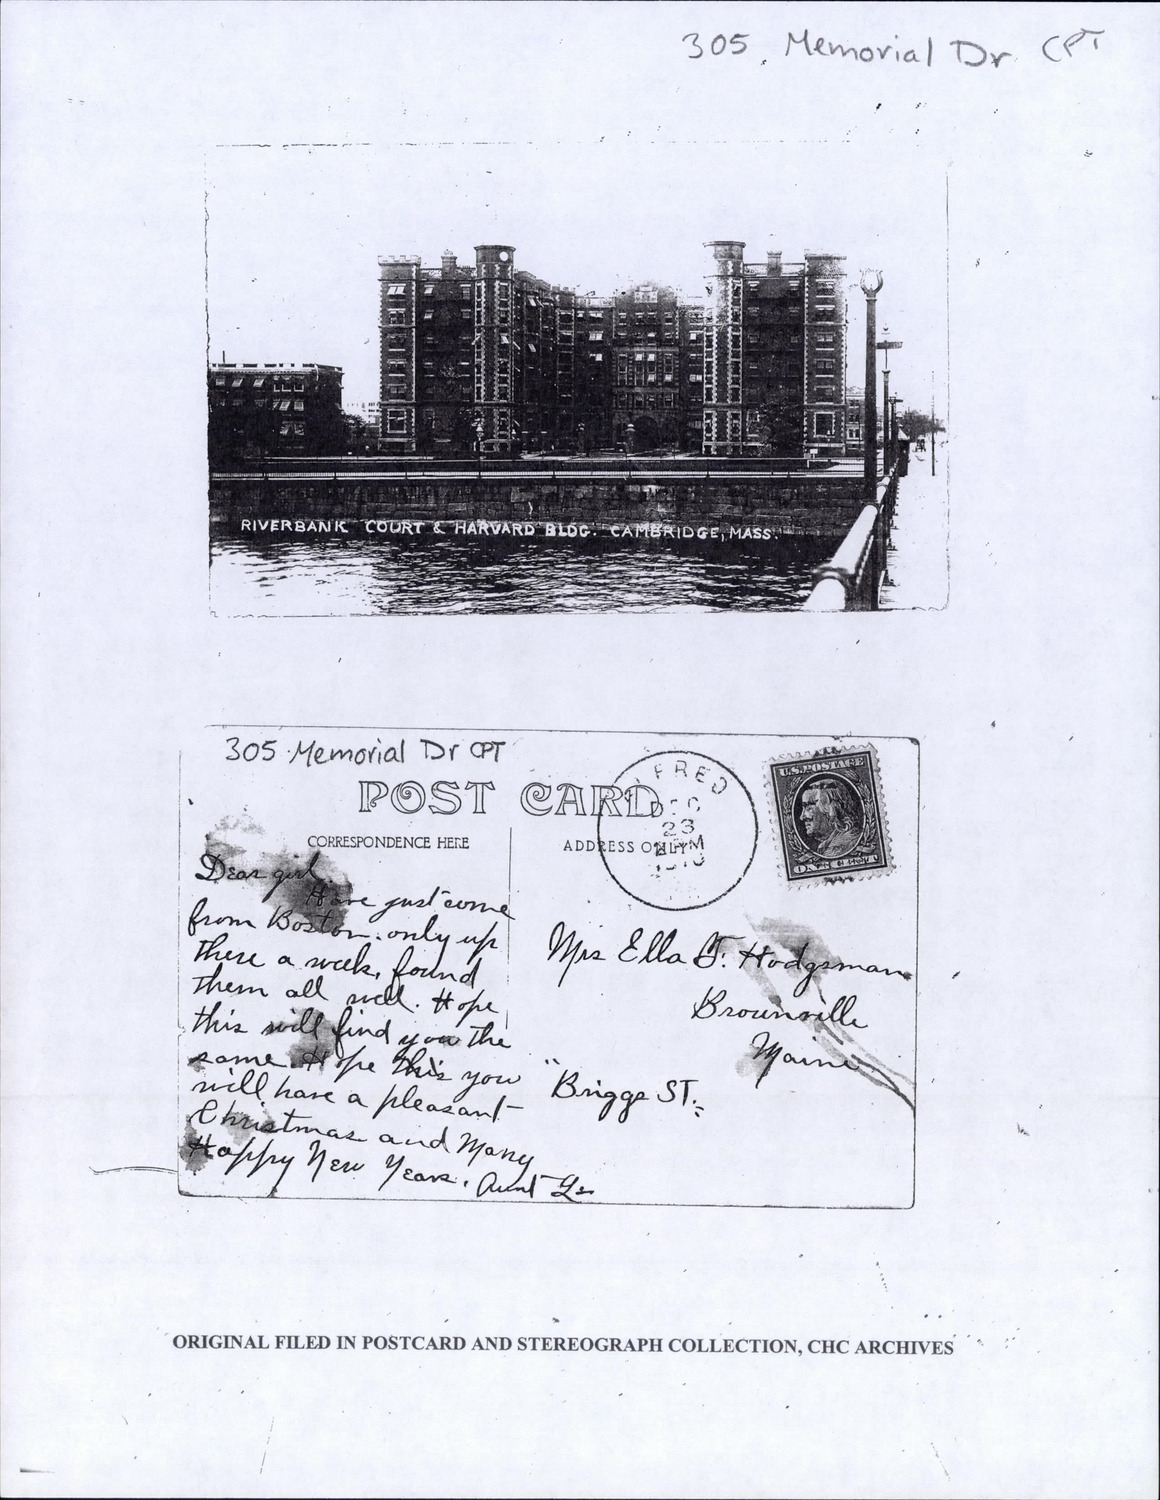 305 Memorial Dr CPT
RIVERBANK COURT & HARVARD BLDG. CAMBRIDGE, MASS.
305 Memorial Dr CPT
POST CARD
CORRESPONDENCE HERE
ADDRESS ONLY
FRED
23
U.S. POSTAGE
ONE CENT
Dear girl.
Have just come
from Boston. only up
there a week, found
them all well. Hope
this will find you the
same. Hope this you
will have a pleasant
Christmas and Many
Happy New Years. Aunt
Mrs Ella F. Hodgsman
Brownville
Maine
"Briggs ST."
ORIGINAL FILED IN POSTCARD AND STEREOGRAPH COLLECTION, CHC ARCHIVES